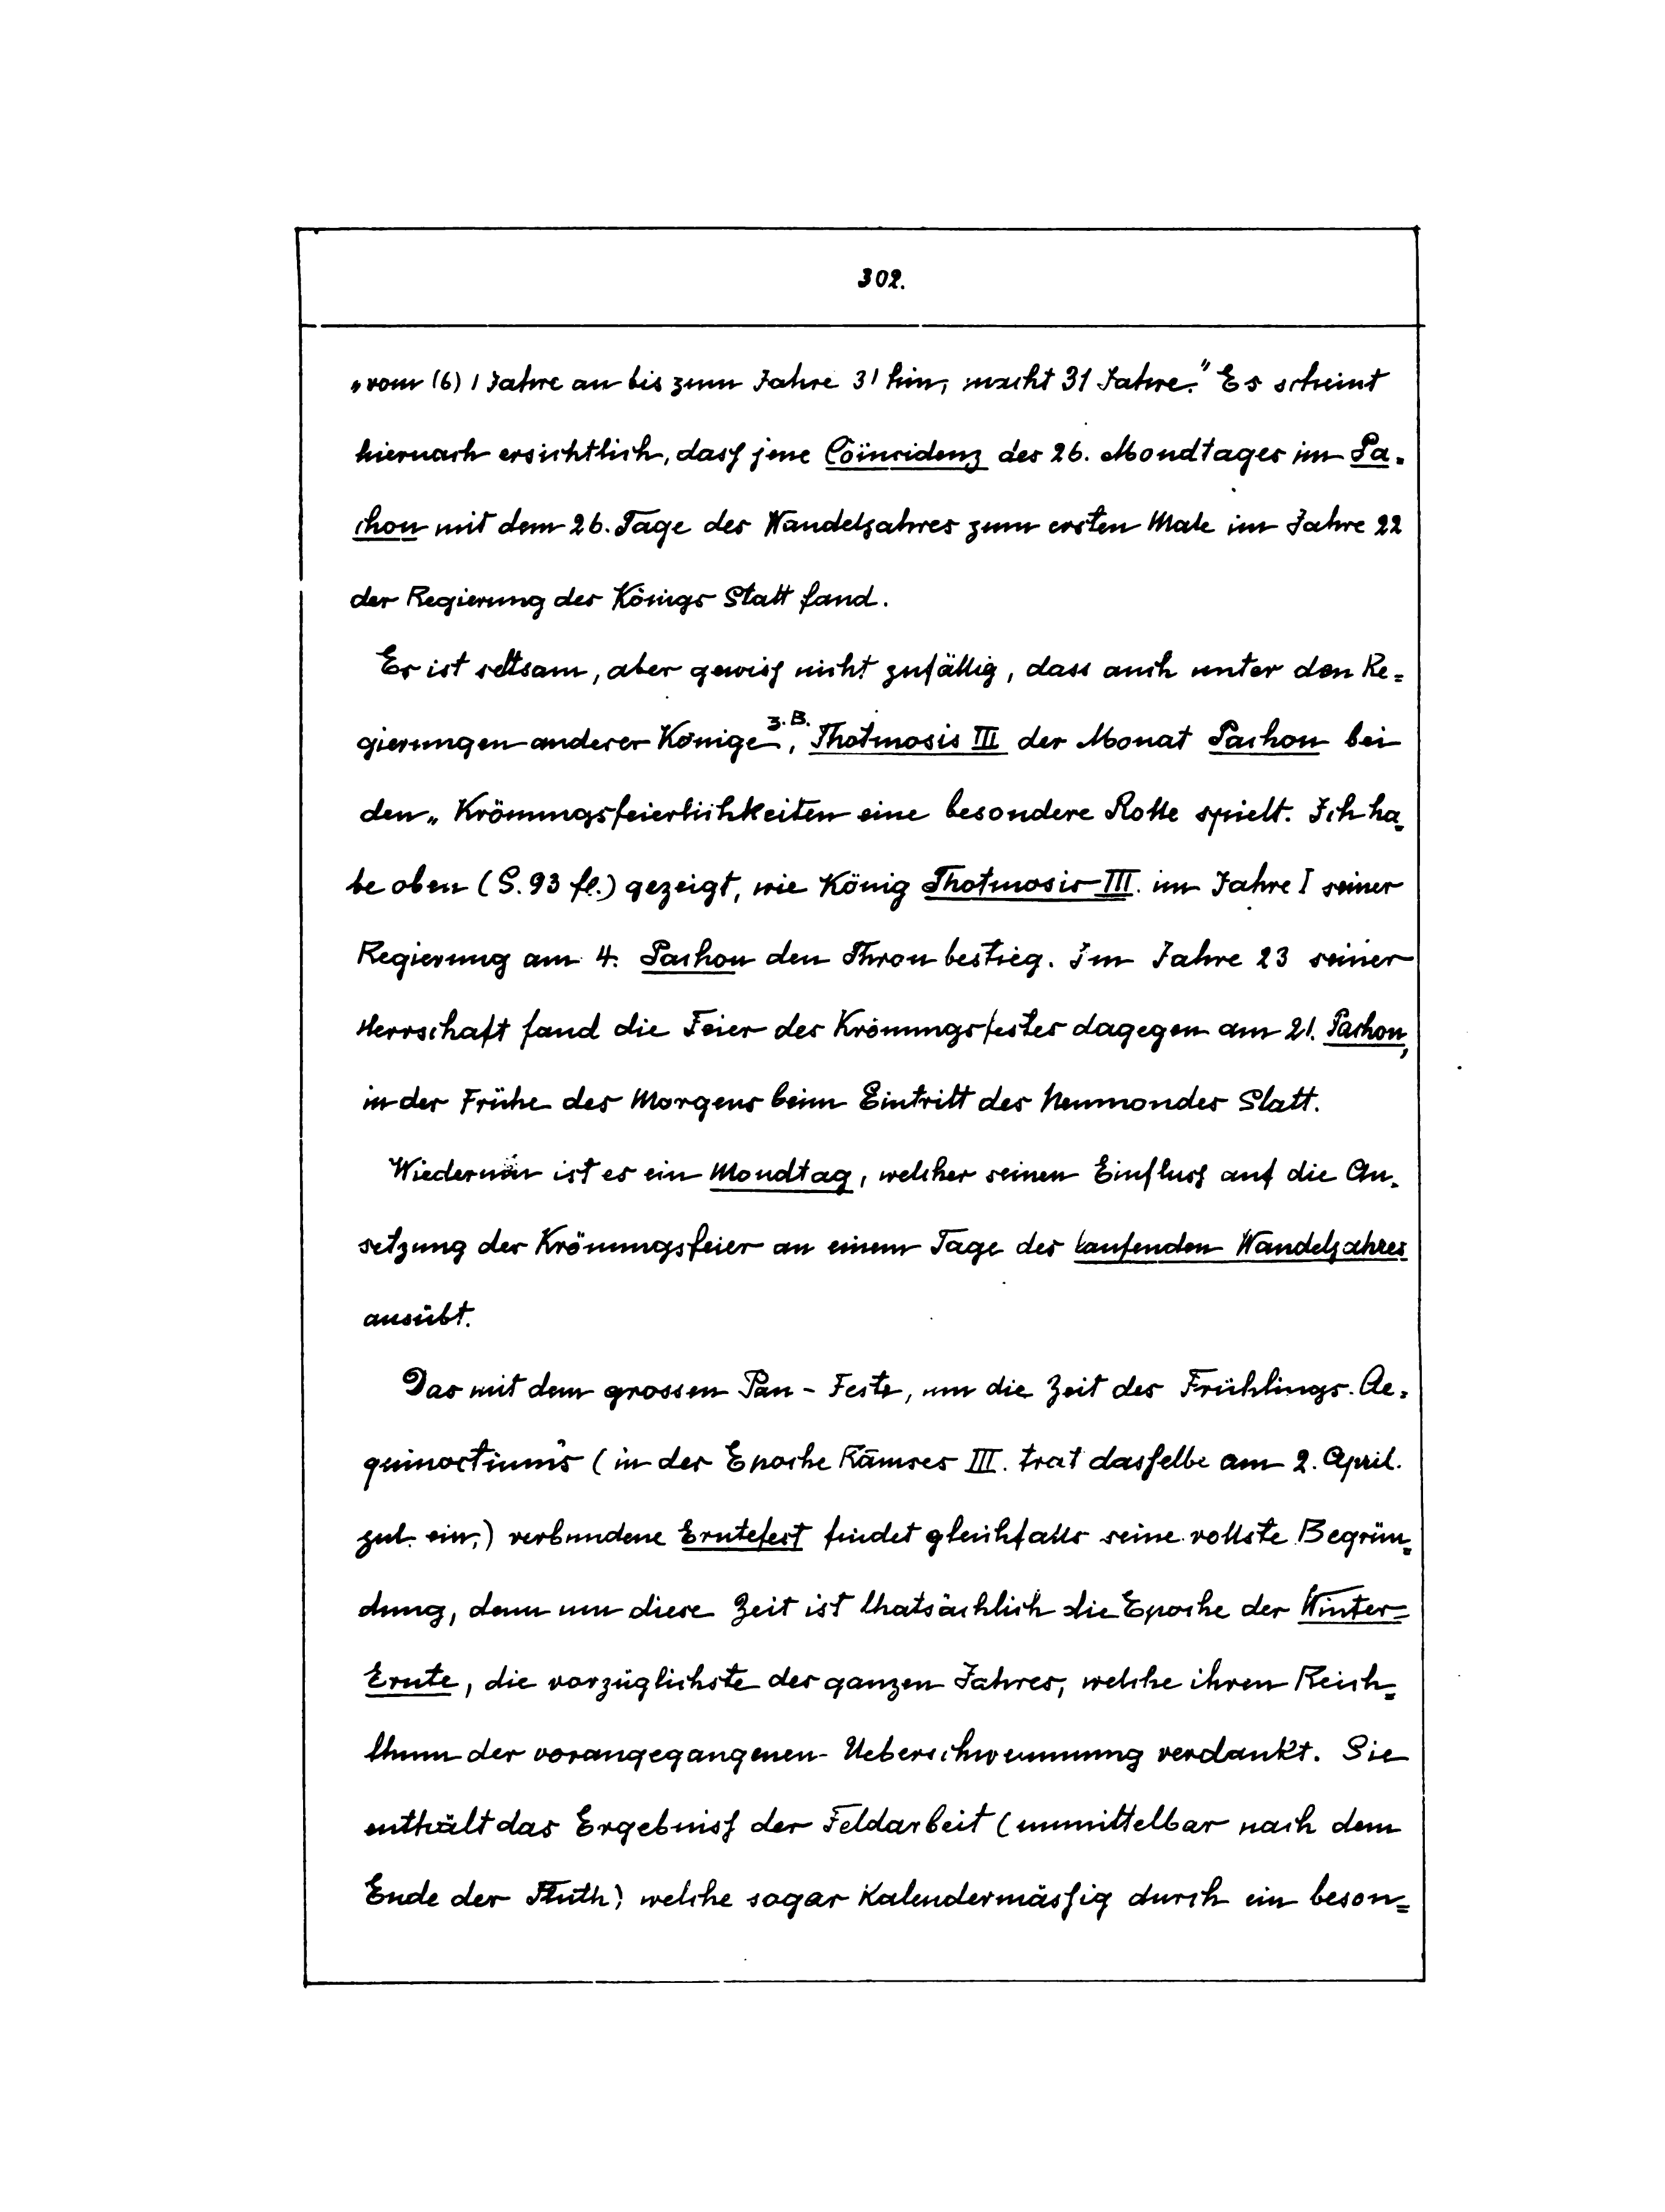 302.
„vom (6) 1 Jahre an bis zum Jahre 31 hin, macht 31 Jahre.“ Es scheint
hiernach ersichtlich, dasſ jene Coïncidenz des 26. Mondtages im Pa-
chon mit dem 26. Tage des Wandeljahres zum ersten Male im Jahre 22
der Regierung des Königs Statt fand.
Es ist seltsam, aber gewisſ nicht zufällig, dass auch unter den Re=
gierungen anderer Könige z.B., Thotmosis III der Monat Pachon bei
den„ Krönungsfeierlichkeiten eine besondere Rolle spielt. Ich ha=
be oben (S. 93 fl.) gezeigt, wie König Thotmosis III. im Jahre I seiner
Regierung am 4. Pachon den Thron bestieg. Im Jahre 23 seiner
Herrschaft fand die Feier des Krönungsfestes dagegen am 21. Pachon,
in der Frühe des Morgens beim Eintritt des Neumondes Statt.
Wiederum ist es ein Mondtag, welcher seinen Einflusſ auf die An-
setzung der Krönungsfeier an einem Tage des laufenden Wandeljahres
ausübt.
Das mit dem grossen Pan-Feste, um die Zeit des Frühlings-Ae-
quinoctiums (in der Epoche Rāmses III. trat dasſelbe am 2. April.
jul. ein,) verbundene Erntefest findet gleichfalls seine vollste Begrün=
dung, denn um diese Zeit ist thatsächlich die Epoche der Winter=
Ernte, die vorzüglichste des ganzen Jahres, welche ihren Reich=
thum der vorangegangenen Ueberschwemmung verdankt. Sie
enthält das Ergebnisſ der Feldarbeit (unmittelbar nach dem
Ende der Fluth) welche sogar kalendermässig durch ein beson=